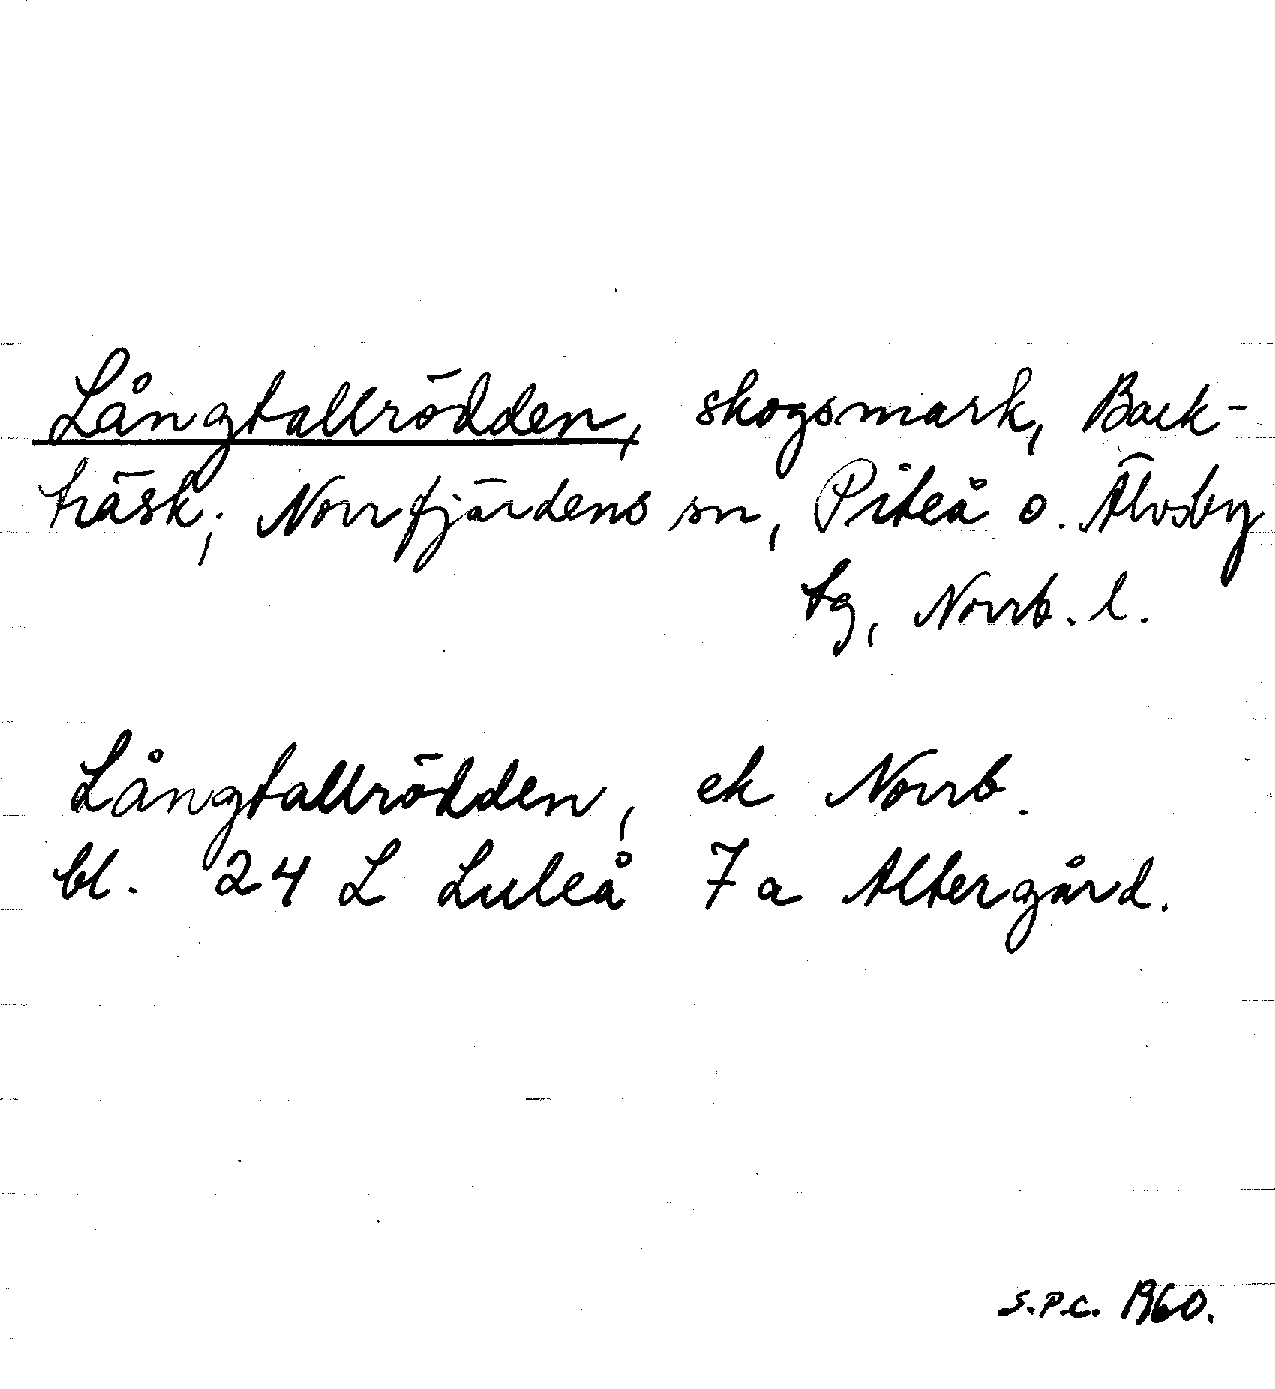 Långtallrödden, skogsmark, Back-
träsk, Norrfjärdens sn, Piteå o. Älvsby
tg, Norrb. l.
Långtallrödden, ek Norrb.
bl. 24 L Luleå 7 a Altergård.
S.P.C. 1960.